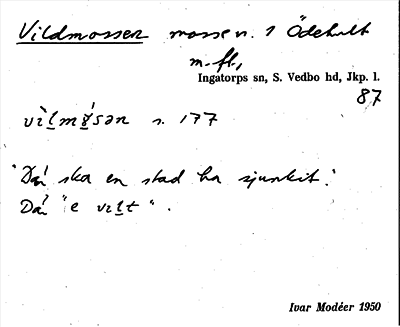 Vildmossen mosse n. 1 Ödehult
m. fl.,
Ingatorps sn, S. Vedbo hd, Jkp. l.
87
s. 177
"Dä́ ska en stad ha sjunkit."
Dä́ "e vilt".
Ivar Modéer 1950